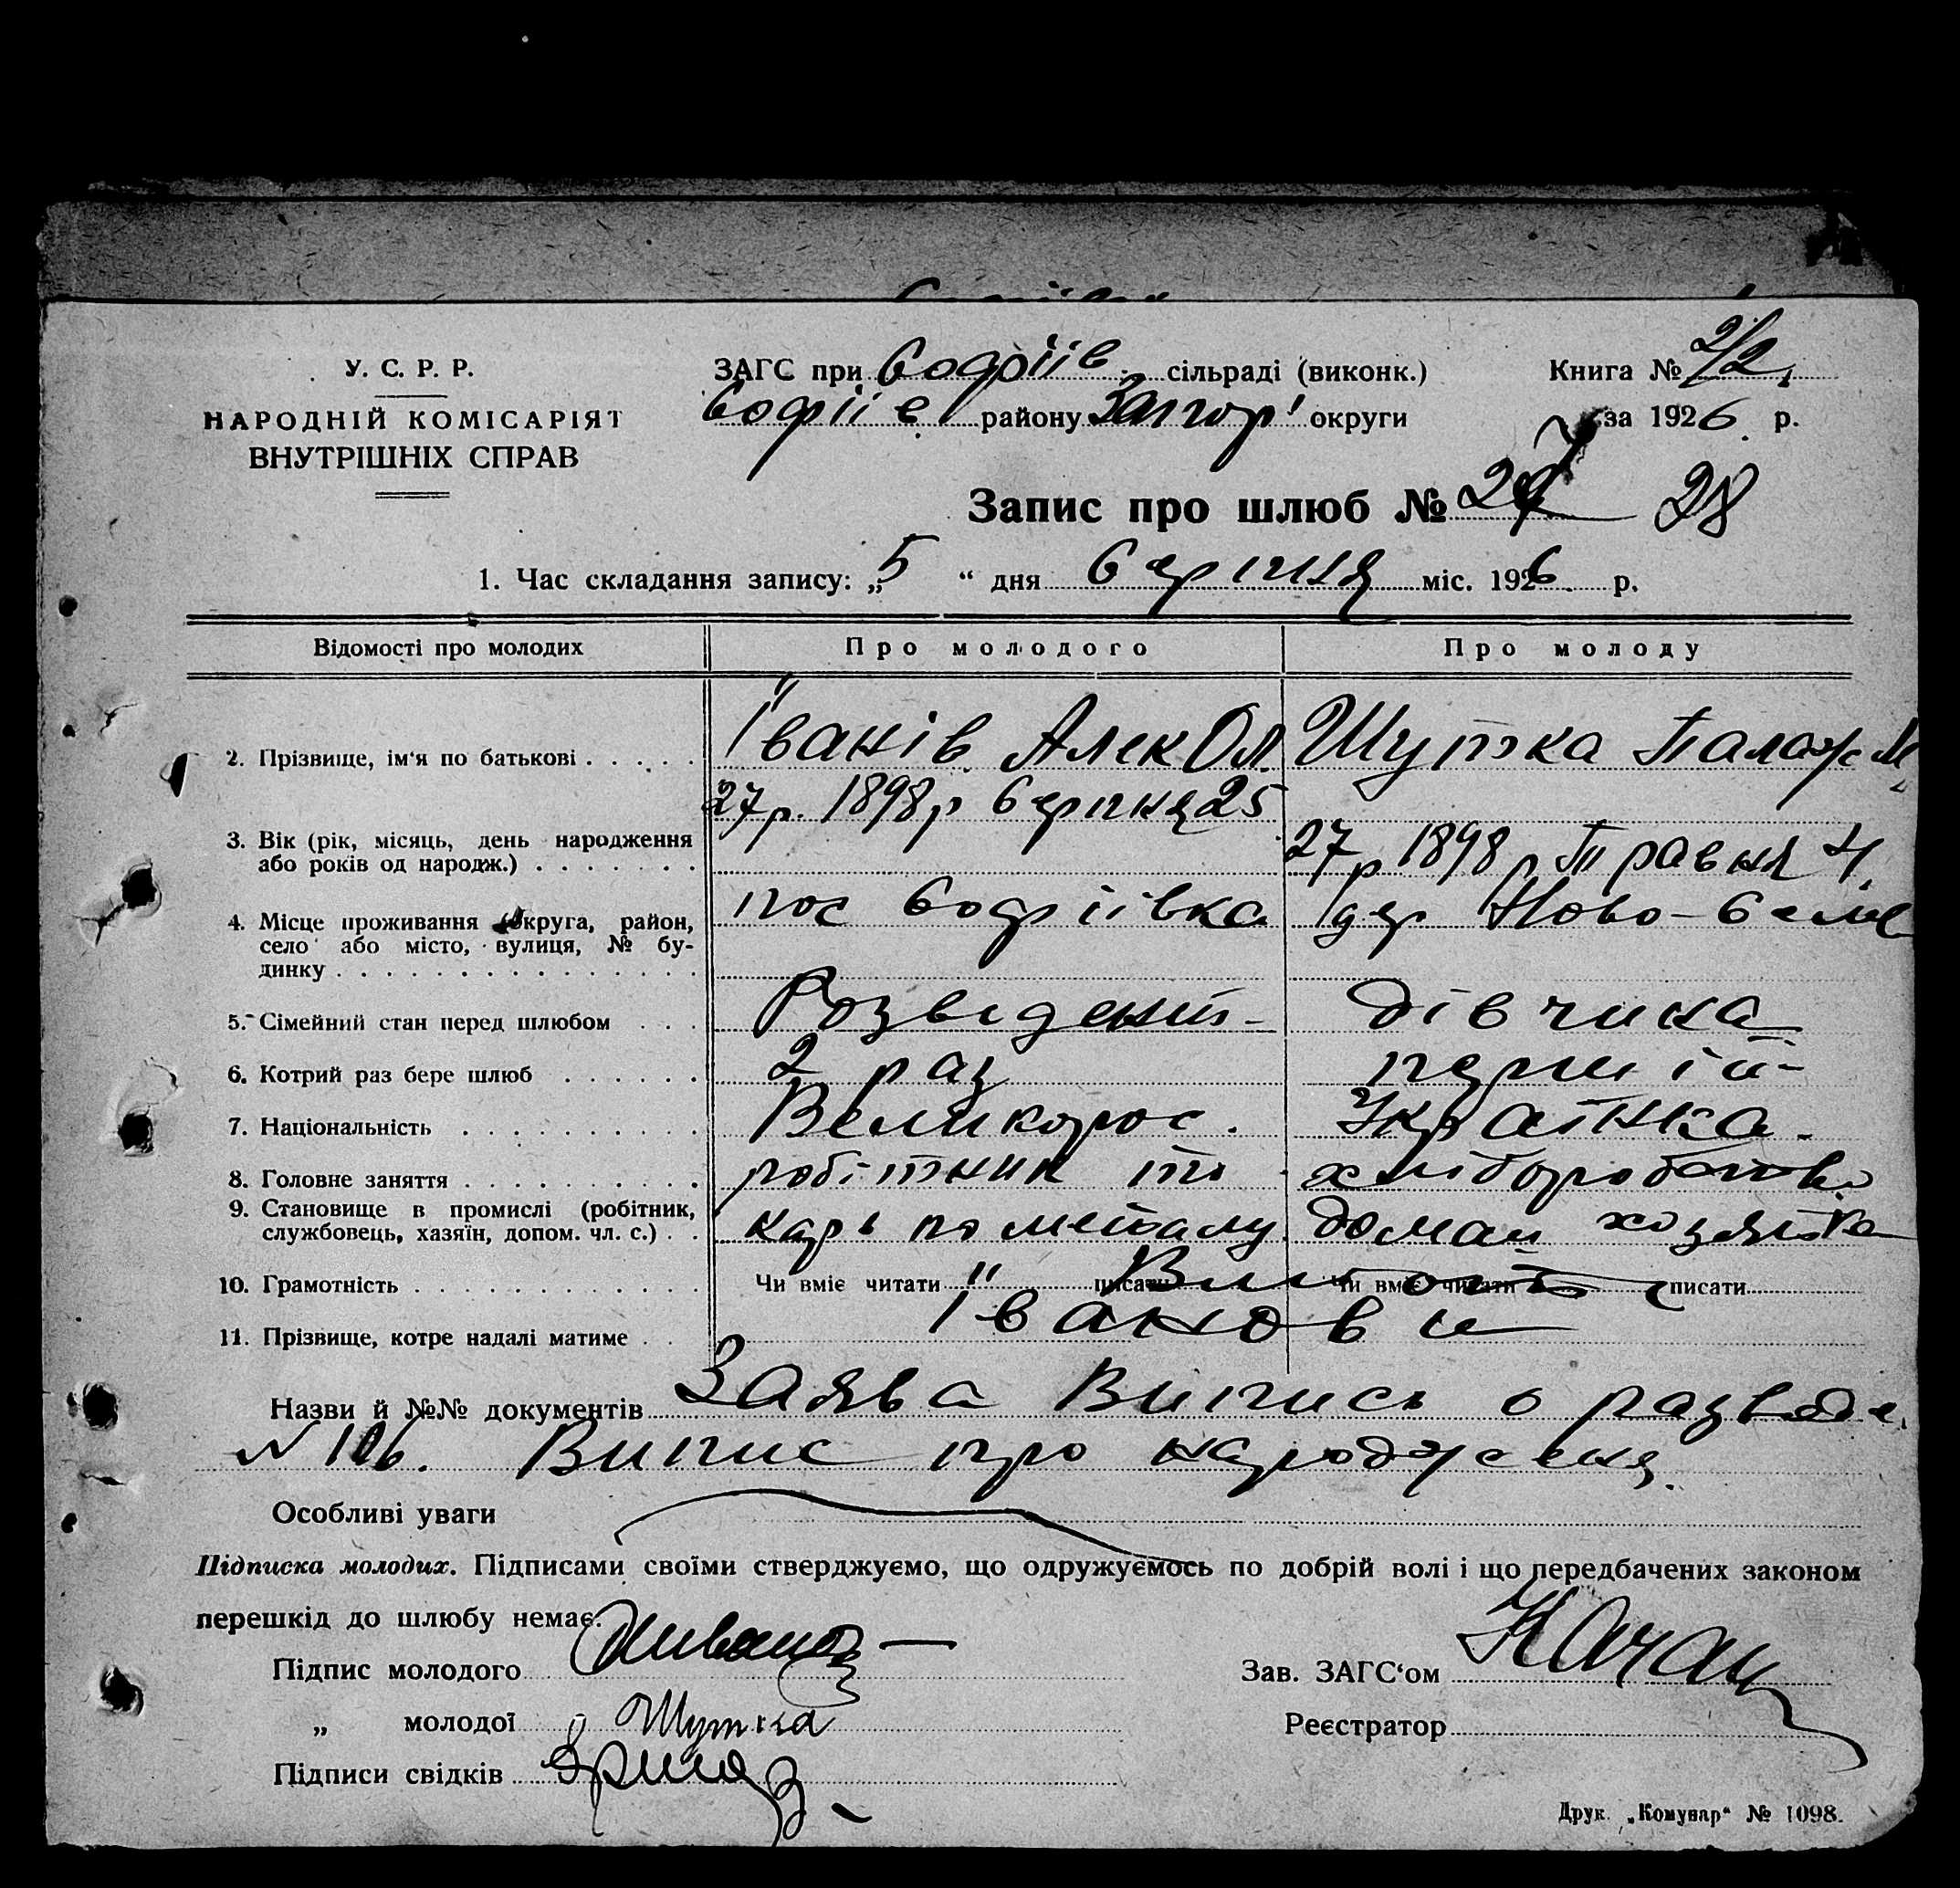 У. С. Р. Р.
НАРОДНІЙ КОМІСАРІЯТ
ВНУТРІШНІХ СПРАВ
ЗАГС при Софіїв сільраді (виконк.)
Софіїв району Запор округи
Книга № 2/2
за 1926 р.
Запис про шлюб № 27 28
1. Час складання запису: „5“ дня Серпня міс. 1926 р.
Відомості про молодих Про молодого Про молоду
2. Прізвище, ім'я по батькові Іванів Алек Ол. Шутка Палаж М
3. Вік (рік, місяць, день народження або років од народж.)
27 р. 1898 р Серпня 25
27 р 1898 р Травня 4
4. Місце проживання (округа, район, село або місто, вулиця, № будинку
пос Софіївка
дер Ново-Семе
5. Сімейний стан перед шлюбом Розведений дівчина
6. Котрий раз бере шлюб 2 раз перший
7. Національність Великорос. Українка.
8. Головне заняття робітник то хліборобство
9. Становище в промислі (робітник, службовець, хазяїн, допом. чл. с.)
карь по металу домаш хозяйка
10. Грамотність Чи вміє читати " писати Чи вміє читати писати
11. Прізвище, котре надалі матиме Іванови
Назви й №№ документів Заява Випись о разводе
N 106. Випис про народженя.
Особливі уваги
Підписка молодих. Підписами своїми стверджуємо, що одружуємось по добрій волі і що передбачених законом
перешкід до шлюбу немає.
Підпис молодого
Зав. ЗАГС'ом
„ молодої Шутка
Реєстратор
Підписи свідків
Друк. „Комунар“ № 1098.